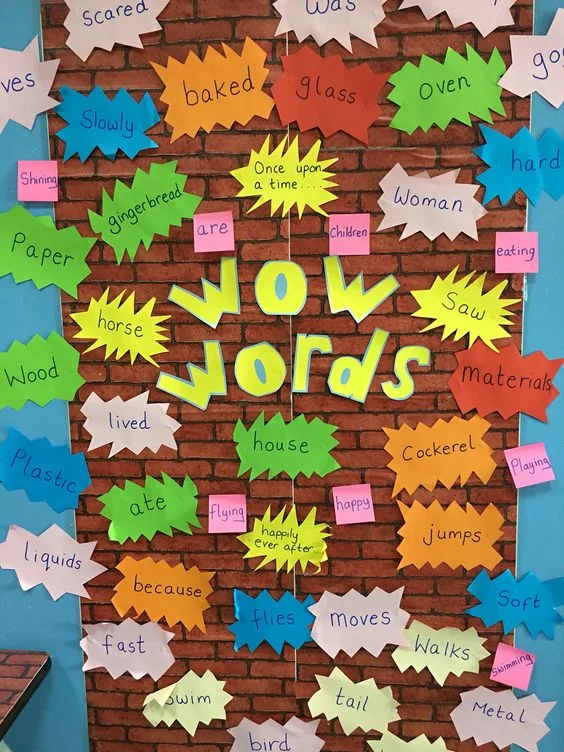 scared
was
Slowly
baked
glass
oven
hard
Shining
gingerbread
Once upon
a time.....
Woman
Paper
are
Children
eating
WOW
words
horse
Saw
Wood
materials
lived
house
Cockerel
Plastic
Playing
ate
flying
happy
happily
ever after...
jumps
liquids
because
flies
moves
Soft
fast
Walks
Swimming
Swim
tail
Metal
bird